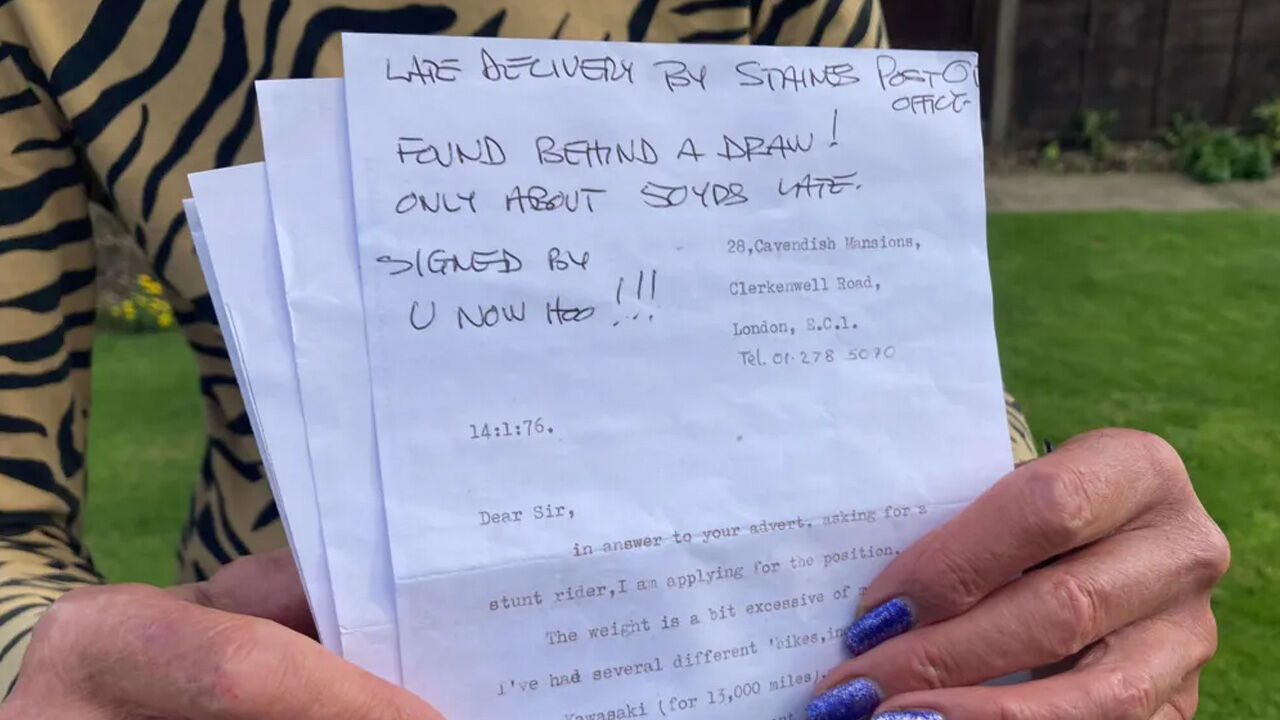 LATE DELIVERY BY STAINES POST O
OFFICE
FOUND BEHIND A DRAW!
ONLY ABOUT 50YDS LATE.
SIGNED BY
U NOW HOO !!!
28,Cavendish Mansions,
Clerkenwell Road,
London, E.C.1.
Tel. 01-278 5070
14:1:76.
Dear Sir,
in answer to your advert. asking for a
stunt rider,I am applying for the position.
The weight is a bit excessive of
I've had several different 'bikes,
Kawasaki (for 13,000 miles)